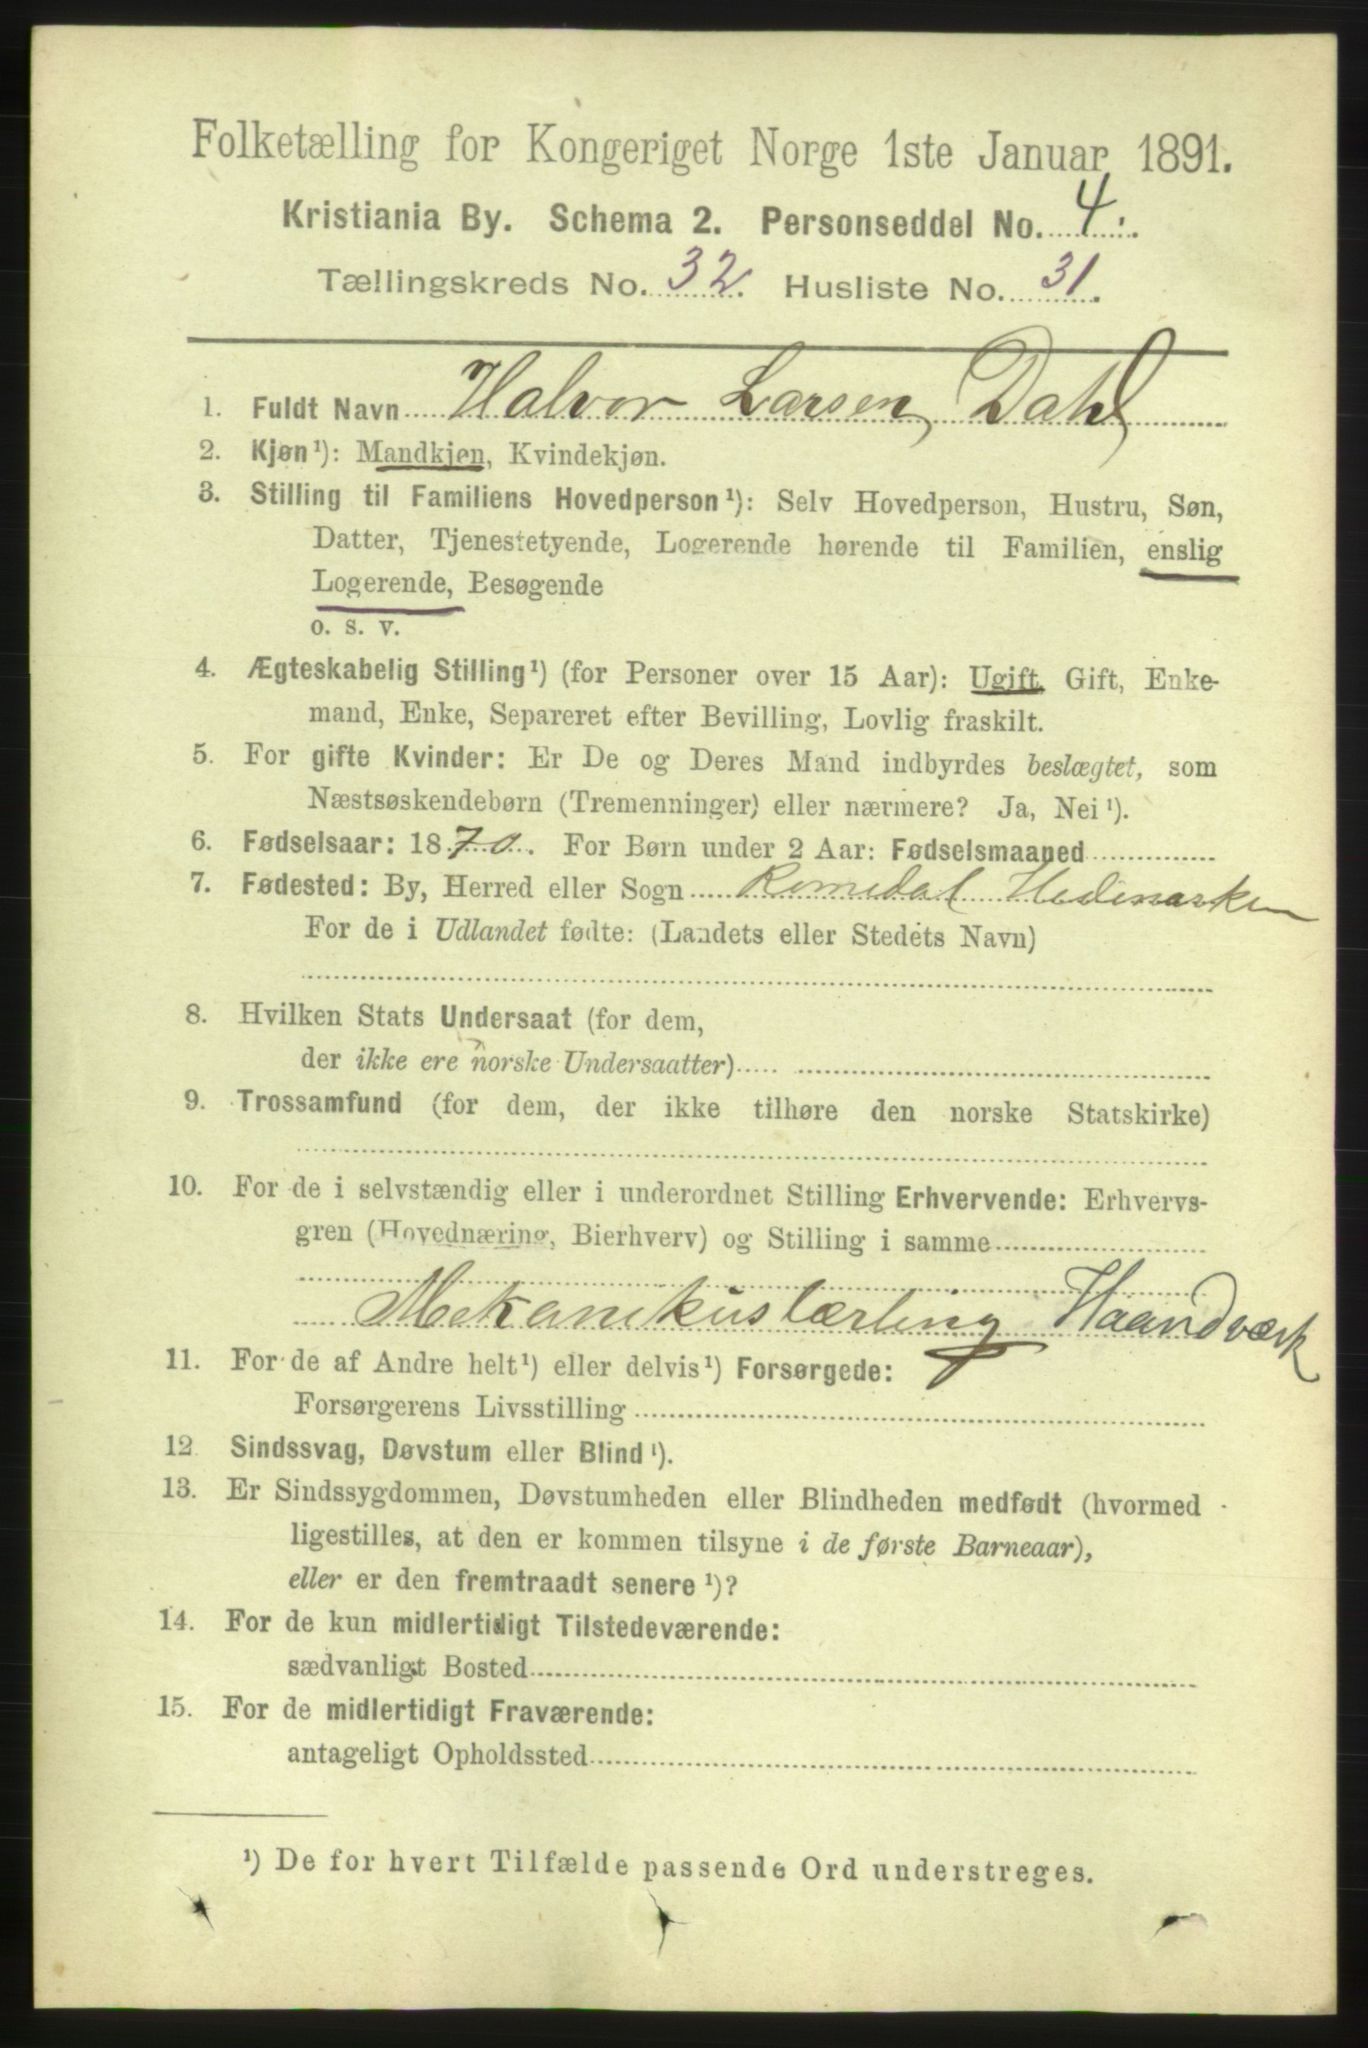 Folketælling for Kongeriget Norge 1ste Januar 1891.
Kristiania By. Schema 2. Personseddel No. 4.
Tællingskreds No. 32. Husliste No. 31.
1. Fuldt Navn Halvor Larsen Dahl
2. Kjøn¹): Mandkjøn, Kvindekjøn.
3. Stilling til Familiens Hovedperson¹): Selv Hovedperson, Hustru, Søn,
Datter, Tjenestetyende, Logerende hørende til Familien, enslig
Logerende, Besøgende
o. s. v.
4. Ægteskabelig Stilling¹) (for Personer over 15 Aar): Ugift, Gift, Enke-
mand, Enke, Separeret efter Bevilling, Lovlig fraskilt.
5. For gifte Kvinder: Er De og Deres Mand indbyrdes beslægtet, som
Næstsøskendebørn (Tremenninger) eller nærmere? Ja, Nei¹).
6. Fødselsaar: 1870. For Børn under 2 Aar: Fødselsmaaned
7. Fødested: By, Herred eller Sogn Romedal Hedemarken
For de i Udlandet fødte: (Landets eller Stedets Navn)
8. Hvilken Stats Undersaat (for dem,
der ikke ere norske Undersaatter)
9. Trossamfund (for dem, der ikke tilhøre den norske Statskirke)
10. For de i selvstændig eller i underordnet Stilling Erhvervende: Erhvervs-
gren (Hovednæring, Bierhverv) og Stilling i samme
Mekanikuslærling Haandværk
11. For de af Andre helt¹) eller delvis¹) Forsørgede:
Forsørgerens Livsstilling
12 Sindssvag, Døvstum eller Blind¹).
13. Er Sindssygdommen, Døvstumheden eller Blindheden medfødt (hvormed
ligestilles, at den er kommen tilsyne i de første Barneaar),
eller er den fremtraadt senere¹)?
14. For de kun midlertidigt Tilstedeværende:
sædvanligt Bosted
15. For de midlertidigt Fraværende:
antageligt Opholdssted
¹) De for hvert Tilfælde passende Ord understreges.